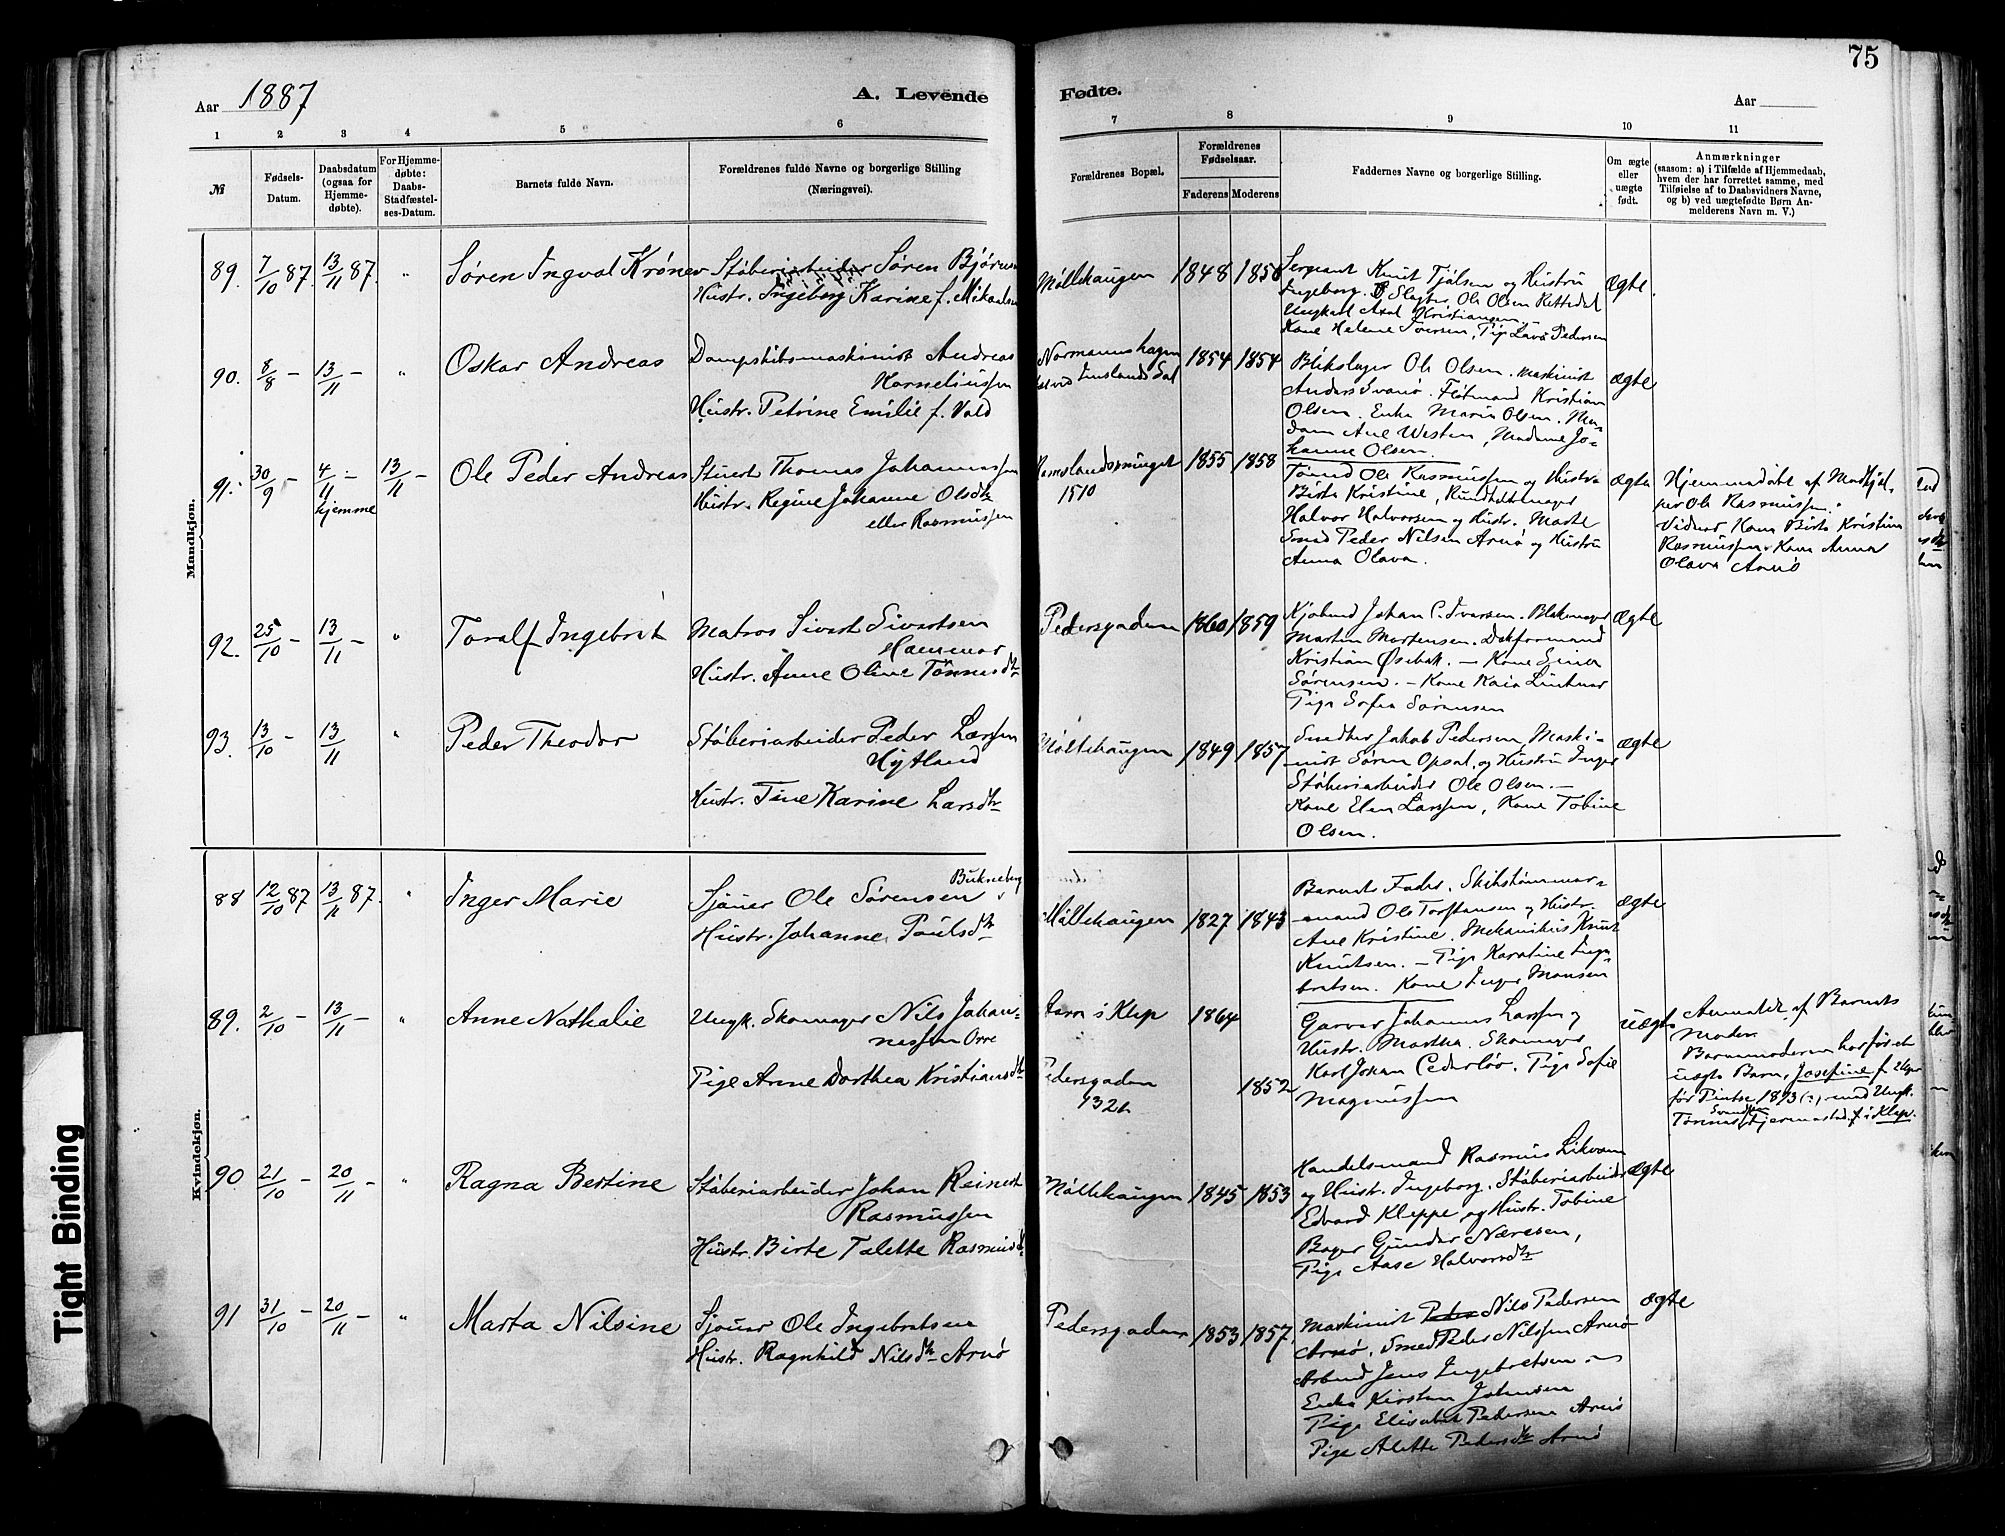 75
Aar 1887
A. Levende
Fødte.
Aar
1 2 3 4 5 6 7 8 9 10 11
№
Fødsels-
Datum.
Daabsdatum
(ogsaa for
Hjemme-
døbte).
For Hjemme-
døbte:
Daabs-
Stadfæstel-
ses-Datum.
Barnets fulde Navn.
Forældrenes fulde Navne og borgerlige Stilling
(Næringsvei).
Forældrenes Bopæl.
Forældrenes
Fødselsaar.
Faderens Moderens
Faddernes Navne og borgerlige Stilling.
Om ægte
eller
uægte
født.
Anmærkninger
(saasom: a) i Tilfælde af Hjemmedaab,
hvem der har forrettet samme, med
Tilføielse af to Daabsvidners Navne,
og b) ved uægtefødte Børn An-
melderens Navn m. V.)
Mandkjøn.
89. 7/10 87. 13/11 87. " Søren Ingval Krøner
Støberiarbeider Søren Bjørns
Hustr. Ingeborg Karine f. Mikaels
Møllehaugen 1848 1850
Sergeant Knut Tjølsen og Hustru
Ingeborg. Slagter Ole Olsen Rettedal
Ungkarl Axel Kristiansen
Kone Helene Soersen, Pige Lava Pedersen
ægte
90. 8/8 - 13/11 - " Oskar Andreas
Dampskibsmaskinist Andreas
Korneliussen
Hustr. Petrine Emilie f. Vold
Normannshagen
1854 1854
Blikslager Ole Olsen. Maskinist
Anders Svanø. Fløtmand Kristian
Olsen. Enke Maria Olsen. Ma-
dam Ane Westen, Madame Jo-
hanne Olsen.
ægte
91. 30/9 - 4/11 - hjemme 13/11 - Ole Peder Andreas
Stuert Thomas Johannessen
Hustr. Regine Johanne Olsdtr
eller Rasmussen
Ramslandsmuget
1510
1855 1858
Tømd Ole Rasmussen og Hustru
Birte Kristine,
Halvor Halvorsen og Hustr. Marte
Smed Peder Nilsen Arnø og Hustru
Anna Olava.
ægte
Hjemmedøbt af
Ole Rasmussen.
Vidner Kone Birte Kristine
Rasmussen, Kone Anna
Olava Arnø
92. 25/10 - 13/11 - " Toralf Ingebrit
Matros Sivert Sivertsen
Hammer
Hustr. Anne Oline Tønnesdtr
Pedersgaden 1860 1859
Johan C. Iversen. Blokmager
Martin Mortensen.
Kristian Øsebak. - Kone Sina
Sørensen. - Kone Kaia Lintner
Pige Sofia Sørensen
ægte
93. 13/10 - 13/11 " Peder Theodor
Støberiarbeider Peder Larsen
Hytland
Hustr. Tine Karine Larsdtr
Møllehaugen 1849 1857
Smed Jakob Pedersen, Maski-
nist Søren Opsal, og Hustru Inger
Støberiarbeider Ole Olsen. -
Kone Elen Larssen, Kone Tobine
Olsen.
ægte
Kvindekjøn.
88 12/10 87 13/11 87. " Inger Marie
Sjauer Ole Sørensen Bukneberg
Hustr. Johanne Poulsdtr
Møllehaugen 1827 1843
Barnets Fader. Skibstømmer-
mand Ole Torstensen og Hustr.
Ane Kristine. Mekanikus Knut
Knutsen. - Pige Karoline Inge-
bretsen. Kone Inger Monsen
ægte
89. 2/10 - 13/11 - " Anne Nathalie
Ungk. Skomager Nils Johan-
nessen Orre
Pige Anne Dorthea Kristiansdtr
i Klep 1864
Pedersgaden
132b
1852
Garver Johannes Larssen og
Hustr. Martha. Skomager
Karl Johan Cederløv. Pige Sofie
Magnussen
uægte
Anmeldt af Barnets
Moder.
Barnemoderen har før et
uægte Barn, Josefine f. 2 Uger
før Pintse 1873 (?), med Ungk.
Tønnes Svendsen Tjermestad, f. i Klep.
90 21/10 - 20/11 - " Ragna Bertine
Støberiarbeider Johan Reinert
Rasmussen
Hustr. Birte Talette Rasmusd
Møllehaugen 1845 1853
Handelsmand Rasmus Likvam
og Hustr. Ingeborg. Støberiarbeider
Edvard Kleppe og Hustr. Tobine
Bager Gunder Næresen,
Pige Aase Halvorsdtr
ægte
91 31/10 - 20/11 - " Marta Nilsine
Sjouer Ole Ingebretsen
Hustr. Ragnhild Nilsdtr Arnø
Pedersgaden 1853 1857
Maskinist Peder Nils Pedersen
Arnø. Smed Peder Nilssen Arnø
Arbmd Jens Ingebretsen. -
Enke Kirsten Johnsen
Pige Elisabet Pedersen Arnø
Pige Alette Pedersdtr Arnø
ægte
Tight Binding